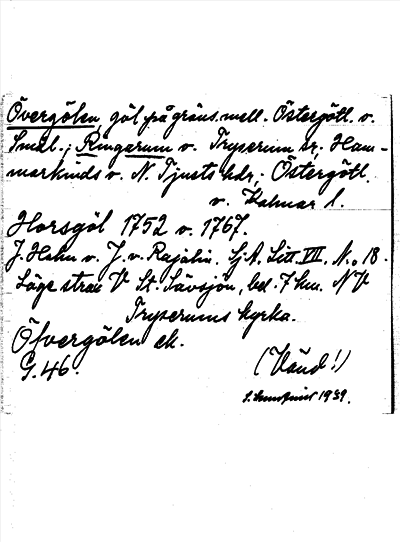 Övergölen, göl på gräns. mell. Östergötl. o.
Smål.; Ringarum o. Tryserum sr, Ham-
markinds o. N. Tjusts hdr, Östergötl.
o. Kalmar l.
Horsgöl 1752 o. 1767.
J. Hahn o. J. v. Rajalin. Sj.A. Litt. VII. No 18.
Läge strax V St. Sävsjön, bel. 7 km. NV
Tryserums kyrka.
Öfvergölen ek.
G. 46.
(Vänd!)
1939.